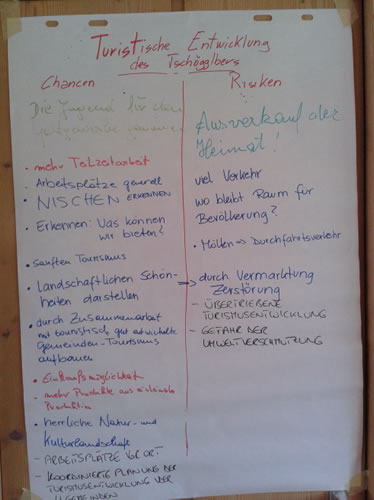 Turistische Entwicklung
des Tschögglbers
Chancen
Die Jugend für den
gewinnen
• mehr Teilzeitarbeit
• Arbeitsplätze generell
• NISCHEN ERKENNEN
• Erkennen: Was können
wir bieten?
• sanften Tourismus
• Landschaftlichen Schön-
heiten darstellen
• durch Zusammenarbeit
mit touristisch gut entwickelte
Gemeinden - Tourismus
aufbauen
• Einkaufsmöglichkeit
• mehr Produkte aus
Produktion
• herrliche Natur- und
Kulturlandschaft
- ARBEITSPLÄTZE VOR ORT
- KOORDINIERTE PLANUNG DER
TOURISMUSENTWICKLUNG DER
GEMEINDEN
Risiken
Ausverkauf der
Heimat!
viel Verkehr
wo bleibt Raum für
Bevölkerung?
• Mölten => Durchfahrtsverkehr
→ durch Vermarktung
Zerstörung
- ÜBERTRIEBENE
TOURISMUSENTWICKLUNG
- GEFAHR DER
UMWELTVERSCHMUTZUNG